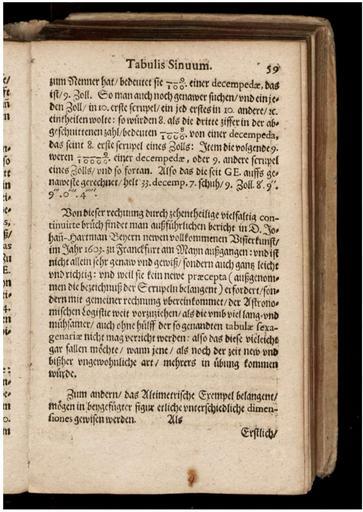 Tabulis Sinuum. 59
zum Nenner hat/ bedeutet sie 9/100. einer decempedæ, das
ist/ 9. Zoll. So man auch noch genawer suchen/ vnd ein je-
den Zoll/ in 10. erste scrupel/ ein jed erstes in 10. andere/ ꝛc.
eintheilen wolte: so würden 8. als die dritte ziffer in der ab-
geschnittenen zahl/ bedeuten 8/1000. von einer decempeda,
das seint 8. erste scrupel eines Zolls: Item die volgende 9.
weren 9/10000. einer decempedæ, oder 9. andere scrupel
eines Zolls/ vnd so fortan. Also das die seit GE. auffs ge-
naweste gerechnet/ helt 33. decemp. 7. schuh/ 9. Zoll. 8′. 9″.
9‴. 0. 4
Von dieser rechnung durch zehentheilige vielfaltig con-
tinuirte brüch findet man außführlichen bericht in D. Jo-
hañ-Hartman Beyern newen vollkommenen Visierkunst/
im Jahr 1603. zu Franckfurt am Mayn außgangen: vnd ist
nicht allein sehr genaw vnd gewiß/ sondern auch gang leicht
vnd richtig: vnd weil sie kein newe præcepta (außgenom-
men die bezeichnuß der Scrupeln belangent) erfordert/ son-
dern mit gemeiner rechnung vbereinkommet/ der Astrono-
mischen Logistic weit vorzuziehen/ als die vmb viel lang vnd
mühsamer/ auch ohne hülff der so genandten tabulæ sexa-
genariæ nicht mag verricht werden: also das diese vieleicht
gar fallen möchte/ wann jene/ als noch der zeit new vnd
bißher vngewohnliche art/ mehrers in übung kommen
würde.
Zum andern/ das Altimetrische Exempel belangent/
mögen in beygefügter figur etliche vnterschiedliche dimen-
siones gewisen werden. Als
Erstlich/